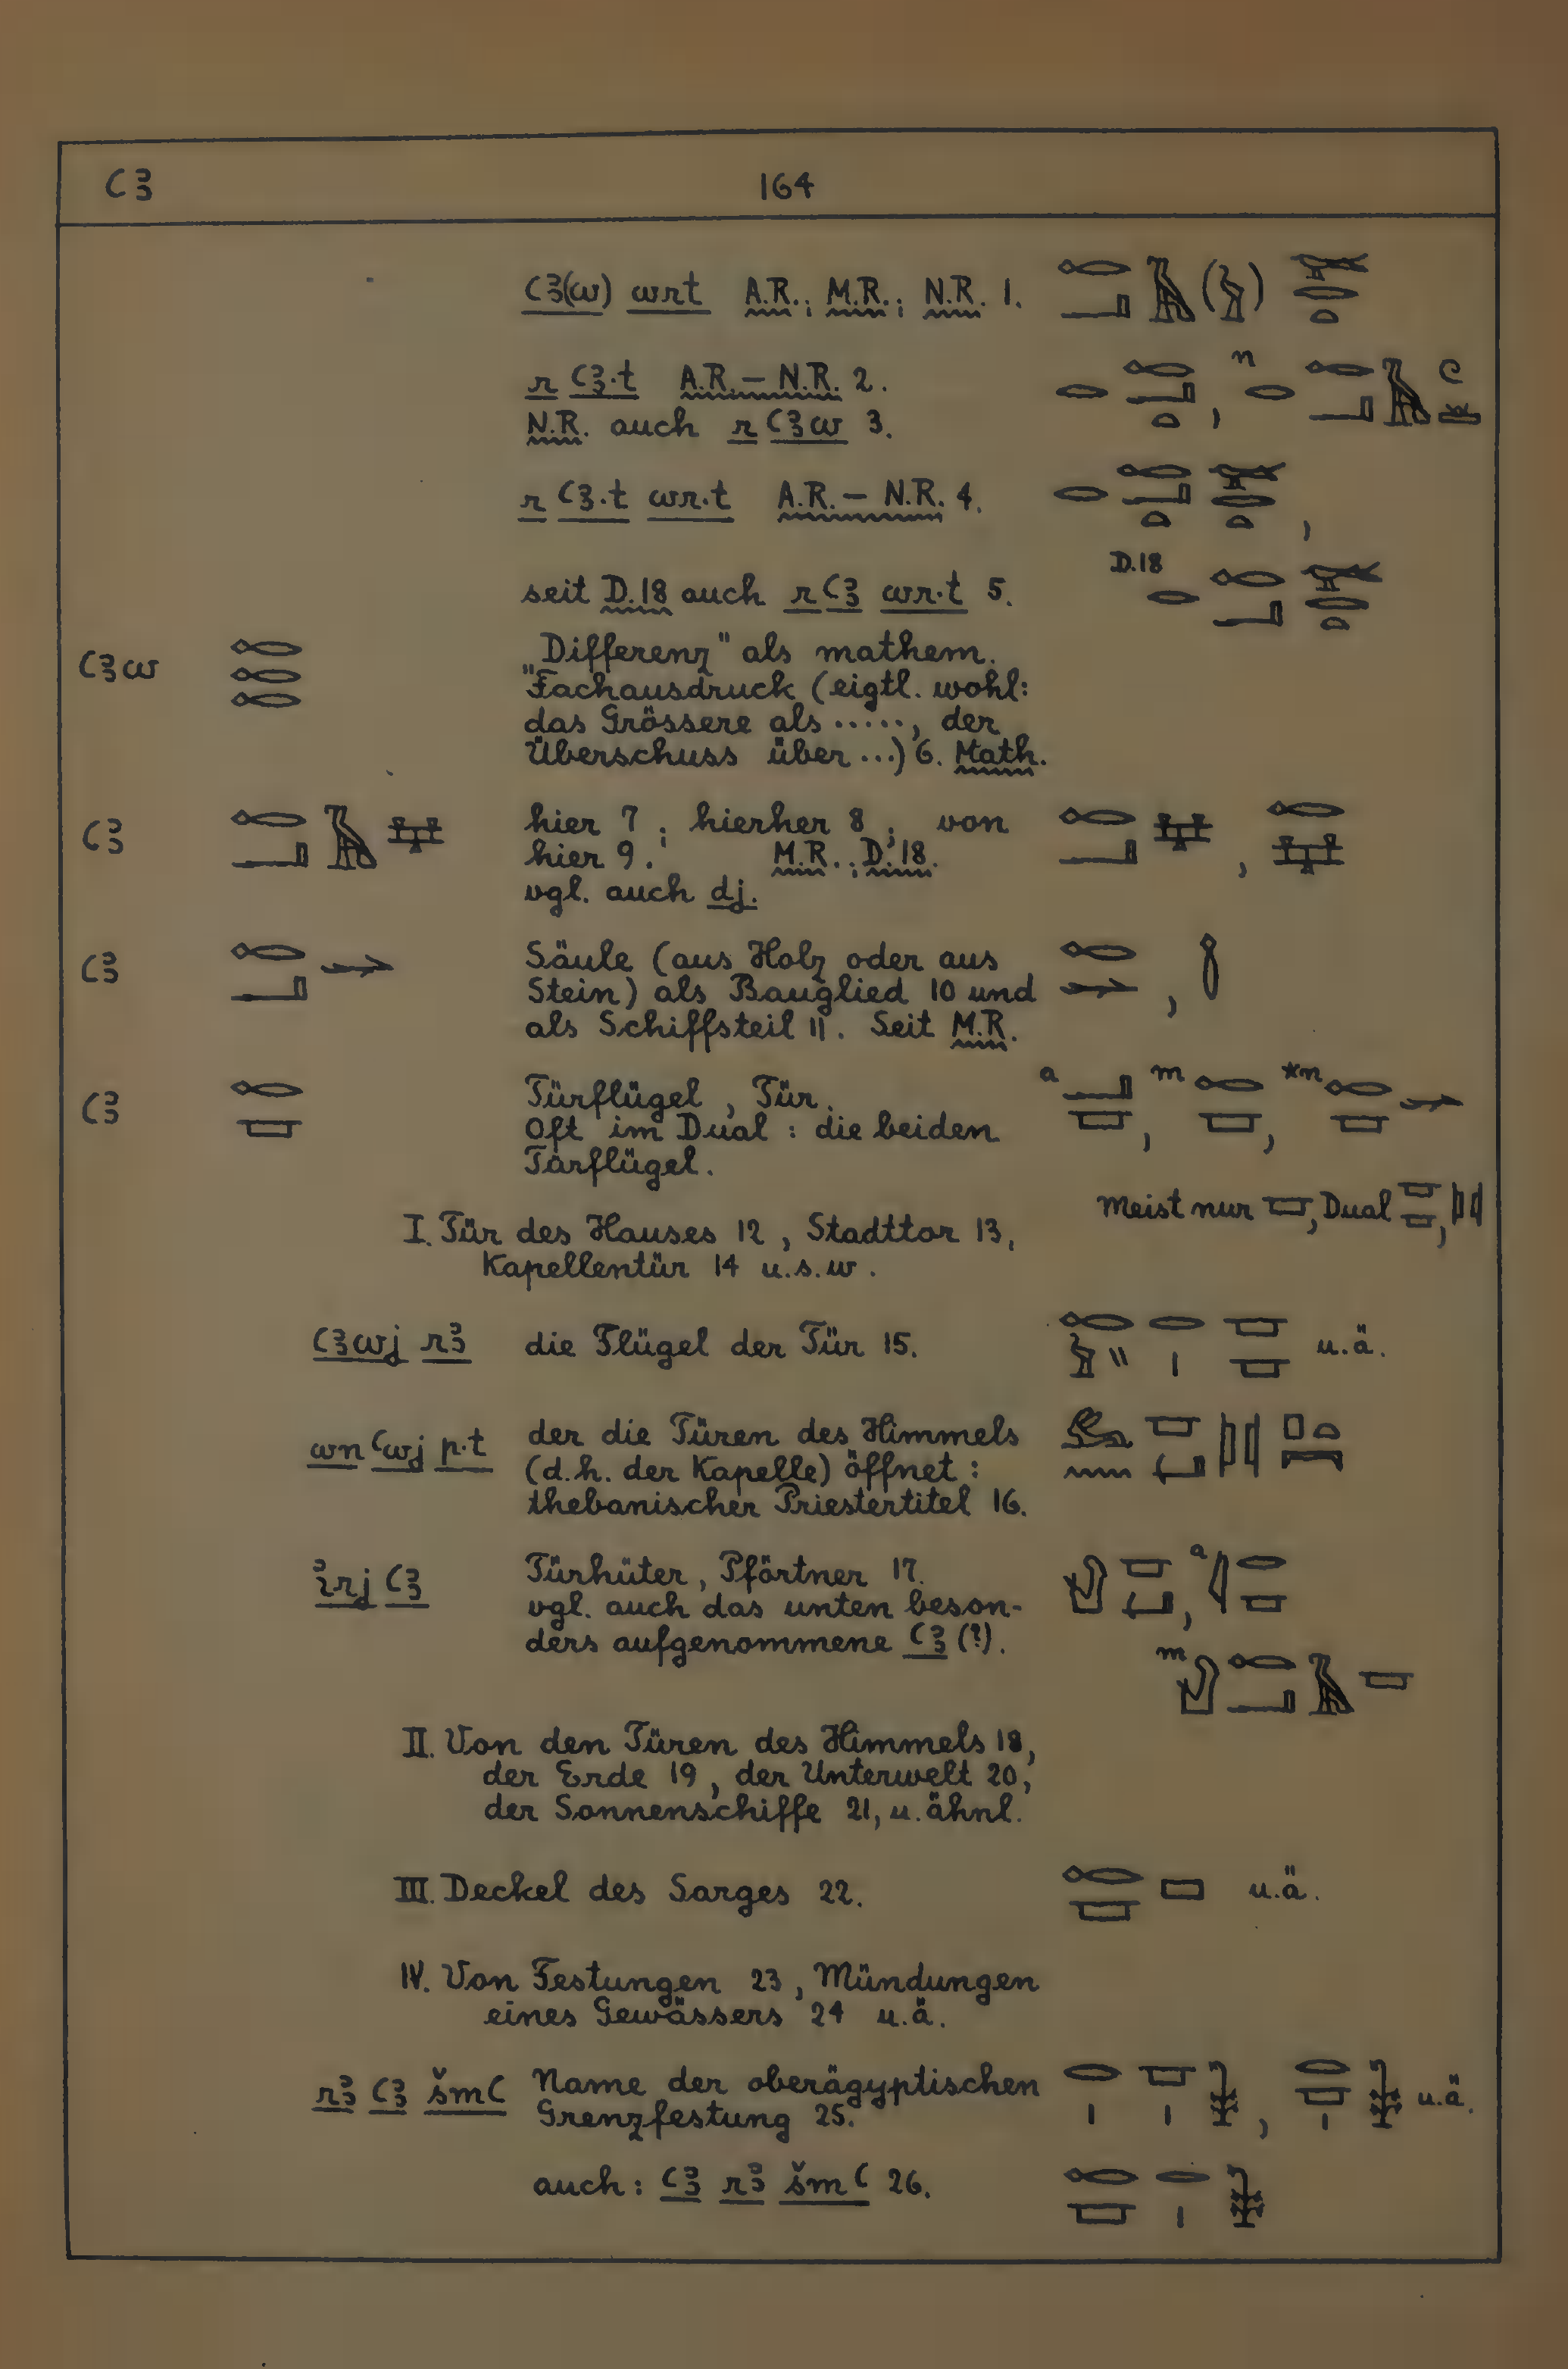 ꜥꜣ 164
ꜥꜣ(w) wrt A.R.; M.R.; N.R. 1.
r ꜥꜣ.t A.R. – N.R. 2. n
N.R. auch r ꜥꜣw 3.
r ꜥꜣ.t wr.t A.R. – N.R. 4.
D.18
seit D.18 auch r ꜥꜣ wr.t 5.
ꜥꜣw „Differenz" als mathem.
Fachausdruck (eigtl. wohl:
das Grössere als ....., der
Überschuss über ...) 6. Math.
ꜥꜣ hier 7; hierher 8; von
hier 9. M.R.; D.18.
vgl. auch dj.
ꜥꜣ Säule (aus Holz oder aus
Stein) als Bauglied 10 und
als Schiffsteil 11. Seit M.R.
ꜥꜣ Türflügel, Tür. a m *n
Oft im Dual: die beiden
Türflügel.
Meist nur , Dual ,
I. Tür des Hauses 12, Stadttor 13,
Kapellentür 14 u.s.w.
ꜥꜣwj rꜣ die Flügel der Tür 15. u.ä.
wn ꜥwj p.t der die Türen des Himmels
(d.h. der Kapelle) öffnet:
thebanischer Priestertitel 16.
ỉrj ꜥꜣ Türhüter, Pförtner 17. a
vgl. auch das unten beson-
ders aufgenommene ꜥꜣ (?). m
II. Von den Türen des Himmels 18,
der Erde 19, der Unterwelt 20,
der Sonnenschiffe 21, u. ähnl.
III. Deckel des Sarges 22. u.ä.
IV. Von Festungen 23, Mündungen
eines Gewässers 24 u.ä.
rꜣ ꜥꜣ šmꜥ Name der oberägyptischen
Grenzfestung 25. u.ä.
auch: ꜥꜣ rꜣ šmꜥ 26.